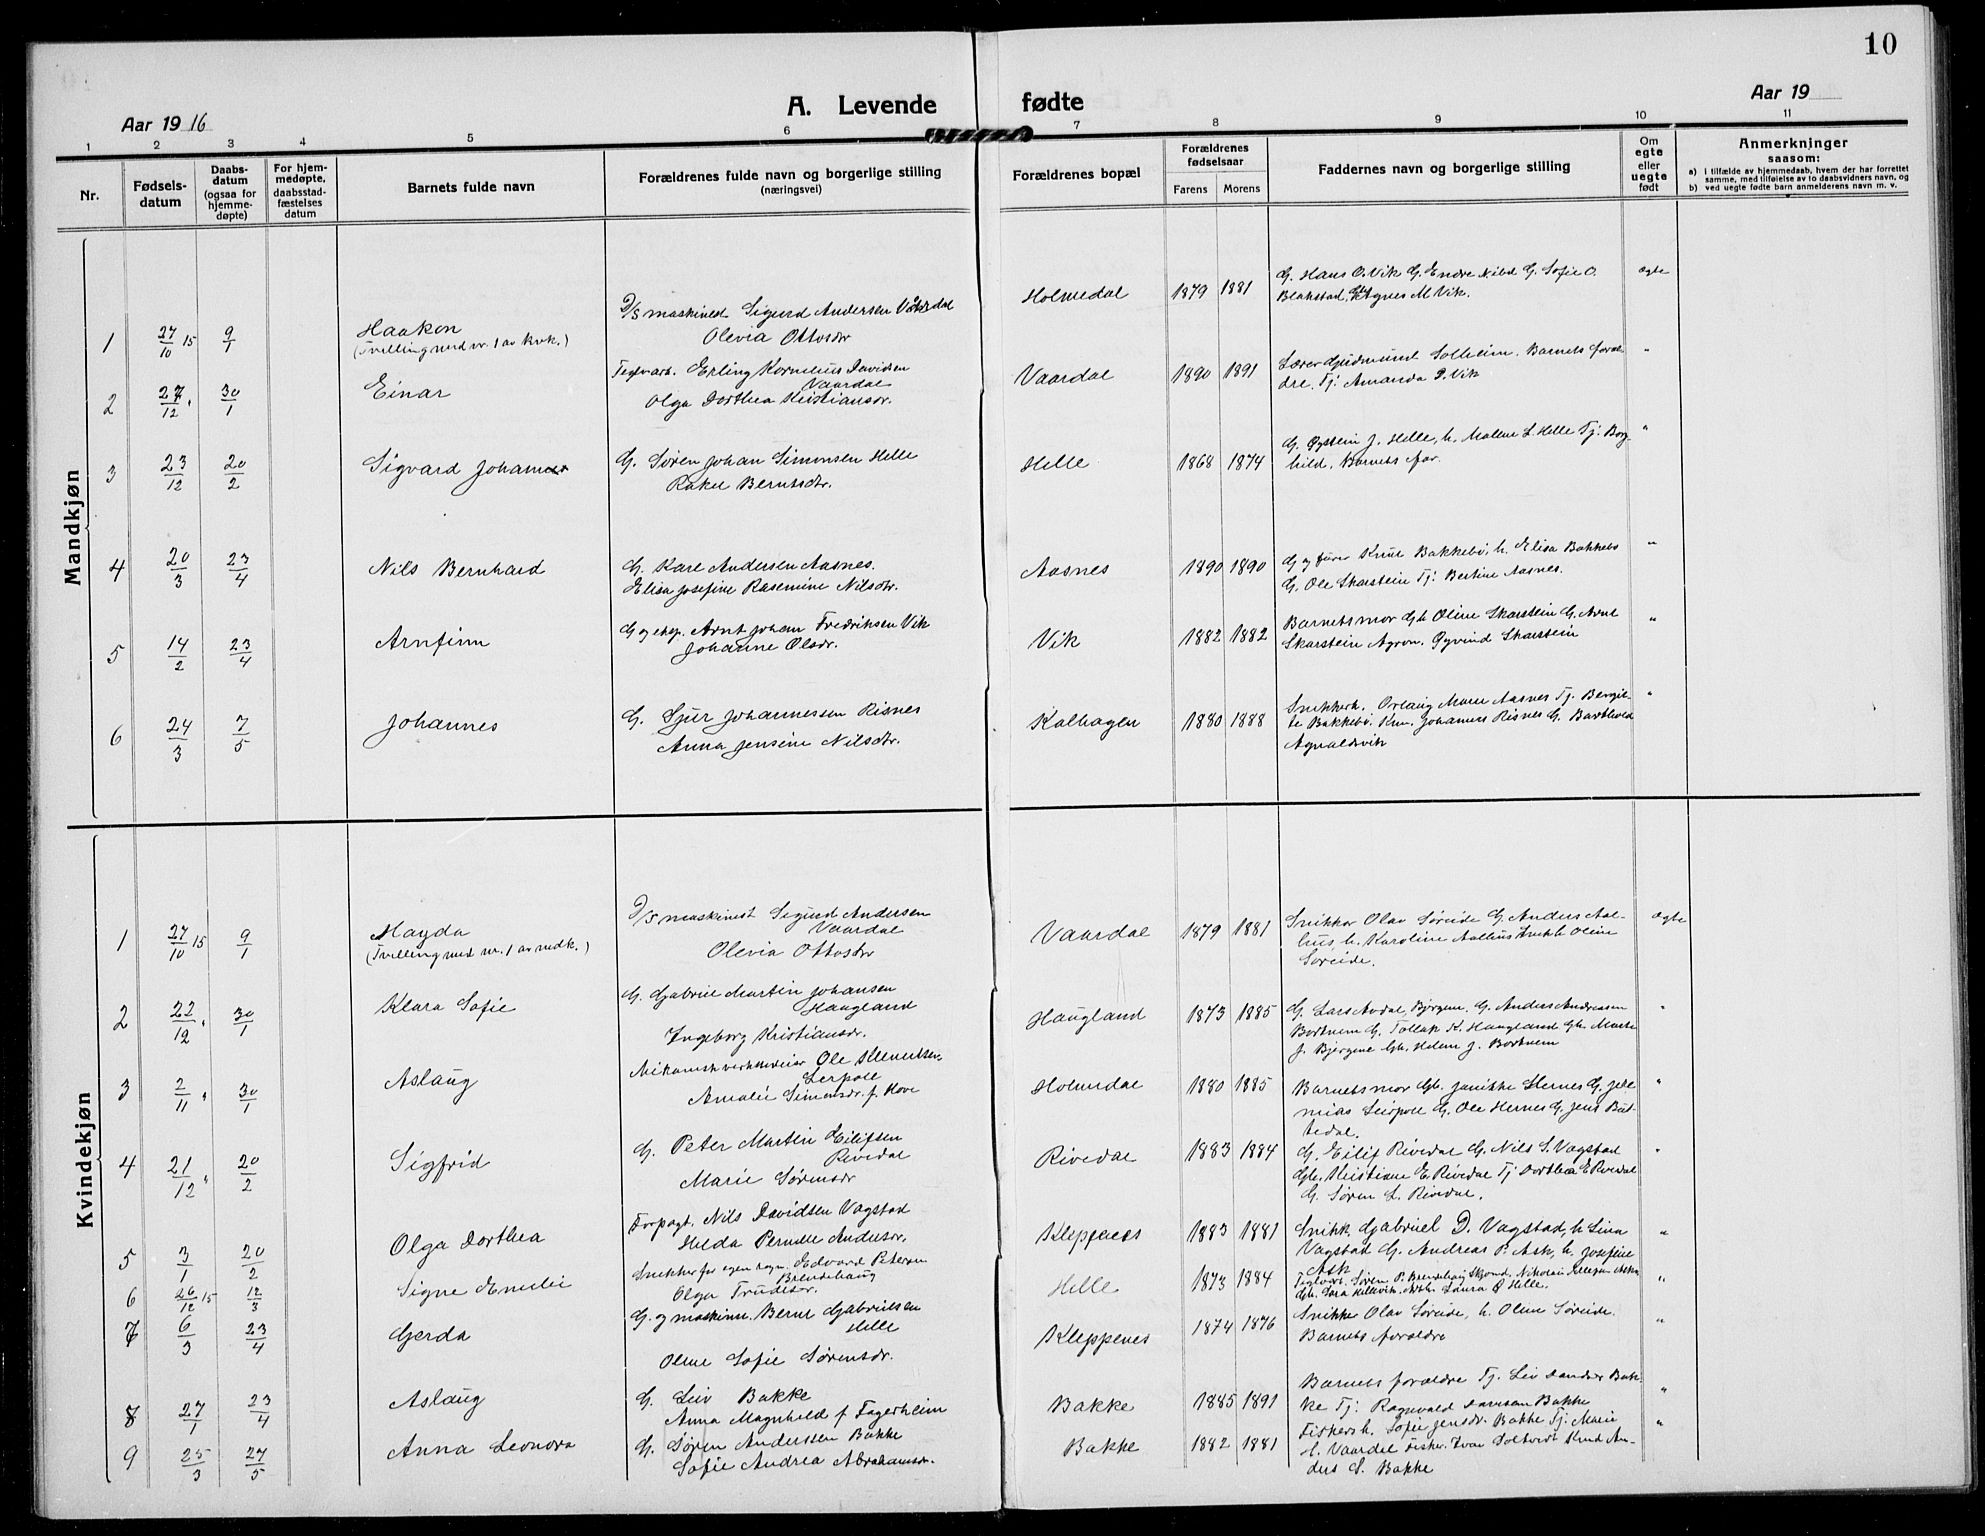 10
A. Levende fødte
Aar 1916
Aar 19
1 2 3 4 5 6 7 8 9 10 11
Nr.
Fødsels-
datum
Daabs-
datum
(ogsaa for
hjemme-
døpte)
For hjem-
medøpte,
daabsstad-
fæstelses
datum
Barnets fulde navn
Forældrenes fulde navn og borgerlige stilling
(næringsvei)
Forældrenes bopæl
Forældrenes
fødselsaar
Farens Morens
Faddernes navn og borgerlige stilling
Om
egte
eller
uegte
født
Anmerkninger
saasom:
a) i tilfælde av hjemmedaab, hvem der har forrettet
samme, med tilføielse av to daabsvidners navn, og
b) ved uegte fødte barn anmelderens navn m. v.
Mandkjøn
1 27/10 15 9/1 Haakon
(Tvilling med nr. 1 av kvk.)
D/S maskinist Sigurd Andersen Vaardal
Olevia Ottosdtr
Holmedal 1879 1881
G. Hans O. Vik G. Endre G. Sofie O.
Blakstad, Agnes M Vik.
ægte
2 27/12 " 30/1 Einar
Teglverk. Erling Kornelius Davidsen
Vaardal
Olga Dorthea Kristiansdr.
Vaardal 1890 1891
Lærer Gudmund Solheim. Barnets foræl-
dre. Tj. Amanda P. Vik
"
3 23/12 20/2 Sigvard Johannes
G. Søren Johan Simonsen Helle
Rakel Berntsdtr.
Helle 1868 1874
G. Øystein J. Helle, h. Malene L. Helle Tj. Borg-
hild. Barnets far.
"
4 20/3 23/4 Nils Bernhard
G. Karl Andersen Aasnes.
Elisa Josefine Rasmine Nilsdtr.
Aasnes 1890 1890
G og fører Knut Bakkebø, h. Elisa Bakkebø
G. Ole Skarstein Tj. Bertine Aasnes.
"
5 14/2 23/4 Arnfinn
G og eksp. Arnt Johan Fredriksen Vik
Johanne Olsdr.
Vik 1882 1882
Barnets mor Gh Oline Skarstein G. Arnt
Skarstein Agron. Øyvind Skarstein
"
6 24/3 7/5 Johannes
G. Sjur Johannessen Risnes
Anna Jensine Nilsdtr.
Kalhagen 1880 1888
Snikkerh. Orlaug Maren Aasnes Tj. Bergit-
te Bakkebø. Johannes Risnes G. Barthold
Agnaldsvik
"
Kvindekjøn
1 27/10 15 9/1 Magda
(Tvilling med nr. 1 av mdk.)
D/S maskinist Sigurd Andersen
Vaardal
Olevia Ottosdtr
Vaardal 1879 1881
Snikker Olav Søreide G. Anders Aal-
hus, h. Karoline Aalhus Snikh Oline
Søreide.
ægte
2 22/12 " 30/1 Klara Sofie
G. Gabriel Martin Johansen
Haugland
Ingeborg Kristiansdr.
Haugland 1873 1885
G. Lars Avdal, Bjørgem, G. Anders Andreasen
Bortnem G. Tollak K. Haugland Gh. Marte
J. Bjergene Gh. Helene J. Bortnem
"
3 2/11 " 30/1 Aslaug
Mekanisk verkseier Ole Klementsen
Lerpoll
Amalie Simonsdr. f. Hove
Holmedal 1880 1885
Barnets mor Gh. Janikke Hernes G. Jere-
mias Leirpoll G. Ole Hernes G. Jens But-
tedal.
"
4 21/12 " 20/2 Sigfrid
G. Peter Martin Eilifsen
Rivedal
Marie Sørensdr
Rivedal 1883 1884
G. Eilif Rivedal G. Nils S. Vagstad
Gh. Kristiane E. Rivedal Tj Dorthea E. Rivedal
G. Søren L. Rivedal.
"
5 3/1 20/2 Olga Dorthea
Forpagt. Nils Davidsen Vagstad
Hilda Pernille Andersdr.
Kleppenes 1883 1881
Snikk. Gabriel D. Vagstad, h. Lina
Vagstad G. Andreas P. Ask, h. Josefine
Ask
"
6 26/12 15 12/3 Signe Emelie
Snekker for egen regn. Edvard Petersen
Brendehaug
Olga Trudesdr.
Helle 1873 1884
Teglverk. Søren P. Brendehaug
Gh. Lara Hellevik. Laura Ø Helle.
"
7 6/3 23/4 Gerda
G. og maskinm. Bernt Gabrielsen
Helle
Oline Sofie Sørensdr.
Kleppenes 1874 1876
Snikker Olav Søreide, h. Oline Søreide.
Barnets forældre
"
8 27/1 23/4 Aslaug
G. Leiv Bakke
Anna Magnhild f Fagerheim
Bakke 1885 1891
Barnets forældre Tj. Leiv Bak-
ke Tj. Ragnvald Bakke
"
9 25/3 27/5 Anna Leonora
G. Søren Anderssen Bakke
Sofie Andrea Abrahamsdr.
Bakke 1882 1881
Fiskersh. Sofie Jensdr. Bakke Tj. Marie
H. Vaardal Fisker. Ivar Knud An-
ders S. Bakke
"